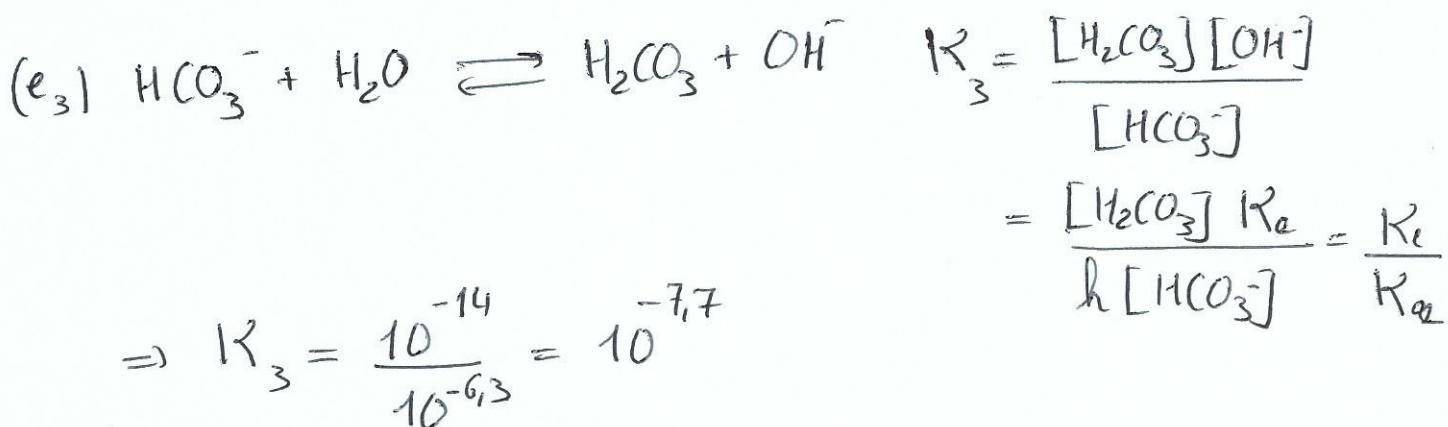 (e₃) HCO₃⁻ + H₂O ⇌ H₂CO₃ + OH⁻ K₃ = [H₂CO₃][OH⁻] / [HCO₃⁻]
= [H₂CO₃] Ke / h [HCO₃⁻] = Ke / Ka₂
⇒ K₃ = 10⁻¹⁴ / 10⁻⁶,³ = 10⁻⁷,⁷